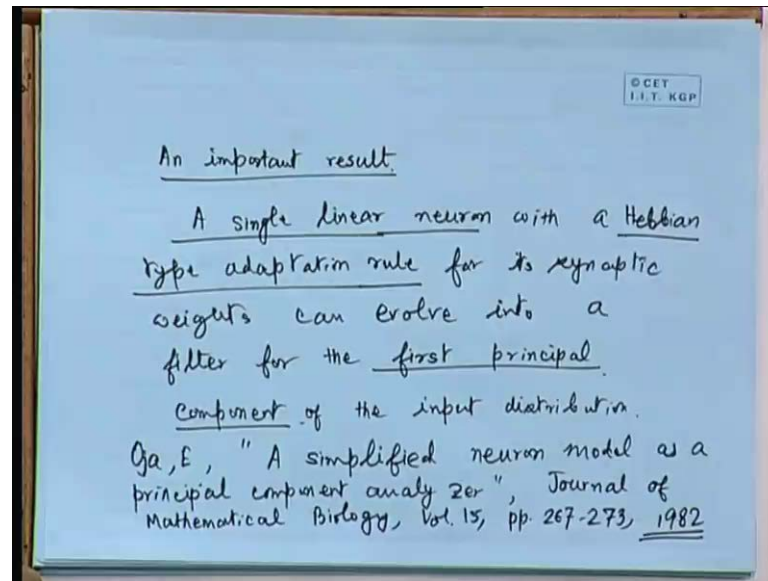 © CET
I.I.T. KGP
An important result.
A single linear neuron with a Hebbian
type adaptation rule for its synaptic
weights can evolve into a
filter for the first principal
component of the input distribution.
Oja, E, "A simplified neuron model as a
principal component analyzer", Journal of
Mathematical Biology, Vol. 15, pp. 267-273, 1982